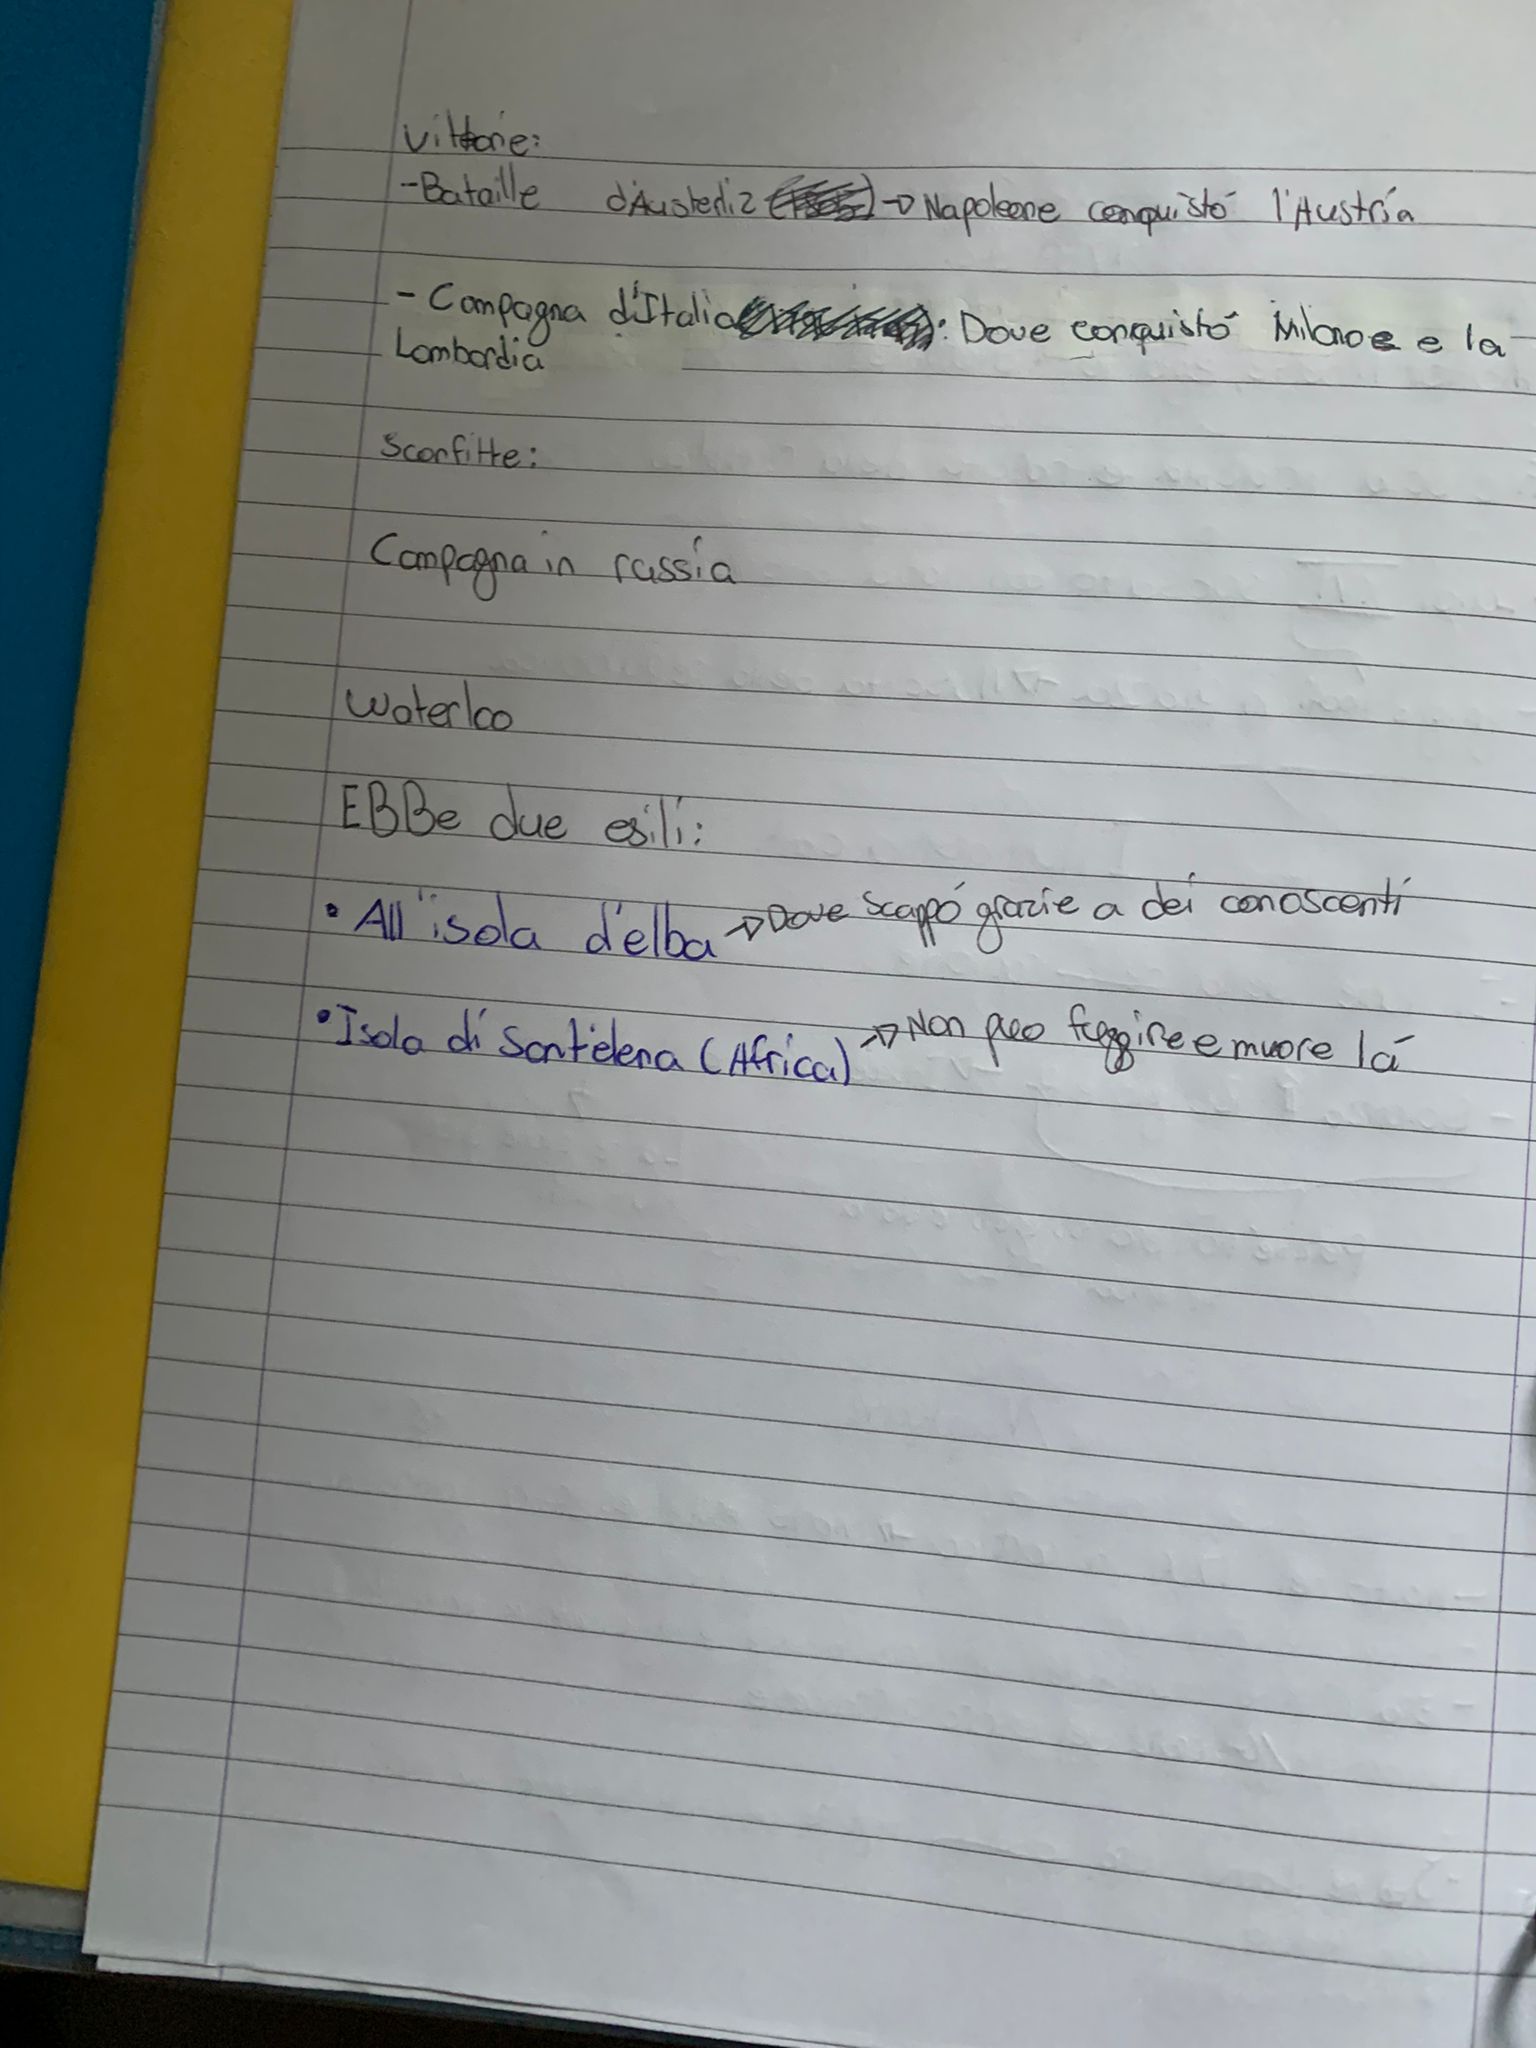 Vittorie:
-Bataille d'Austerliz → Napoleone conquistó l'Austria
- Campagna d'Italia : Dove conquistó Milano e e la
Lombardia
Sconfitte:
Campagna in russia
Waterloo
EBBe due esili:
• All'isola d'elba → Dove scappó grazie a dei conoscenti
• Isola di Sant'elena (Africa) → Non puo fuggire e muore lá